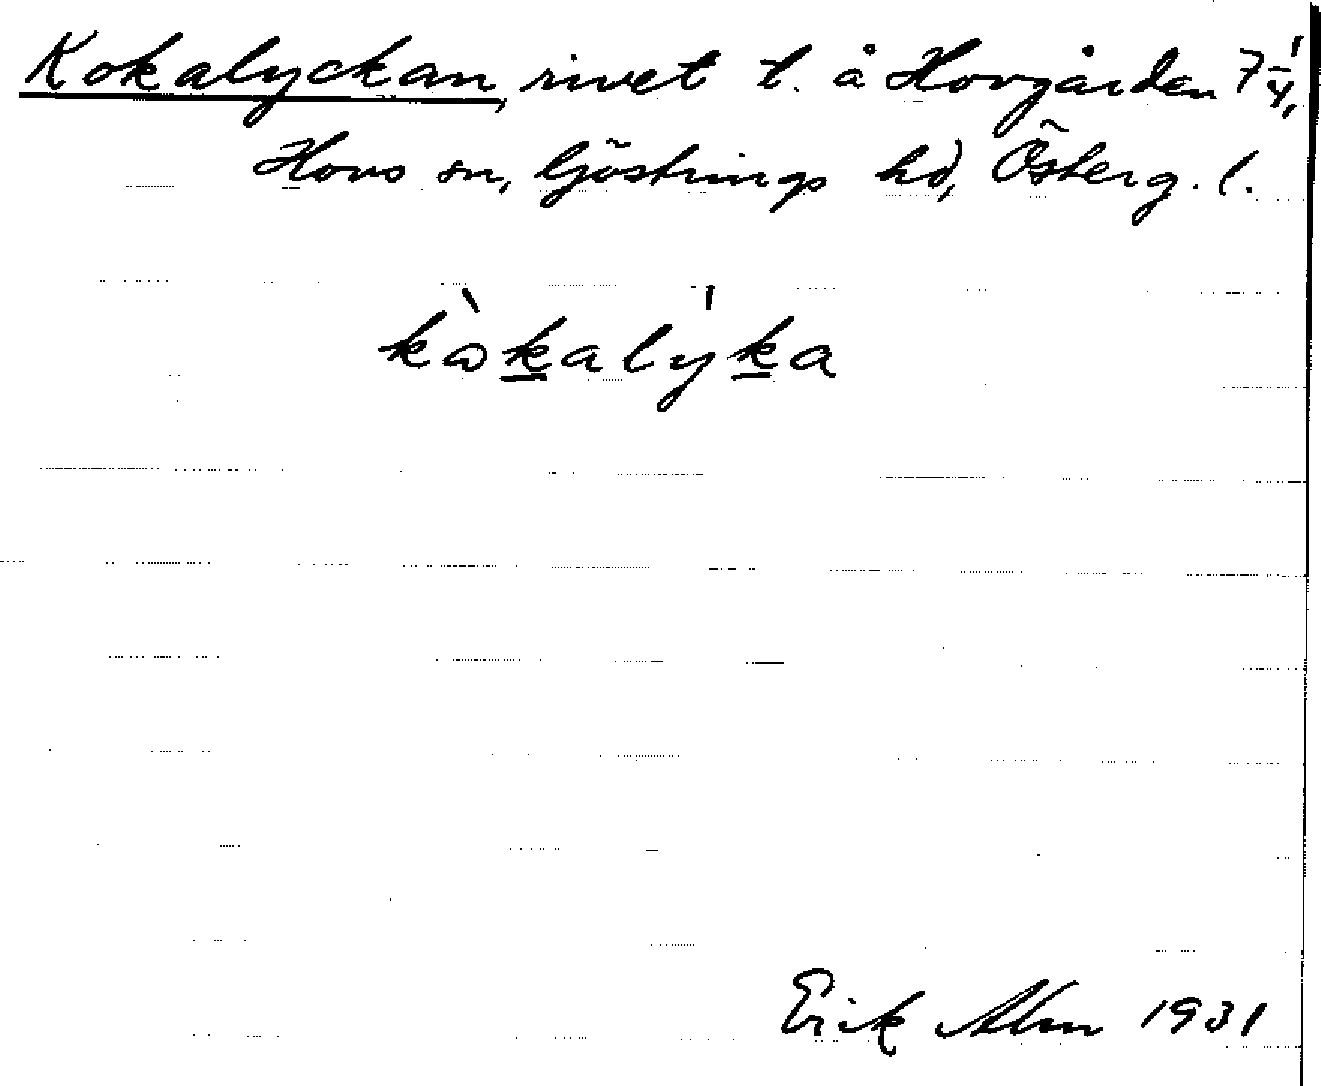 Kokalyckan, rivet t. å Hovgården 7 1/4,
Hovs sn, Göstrings hd, Österg. l.
kὼkalýka
Erik Alm 1931